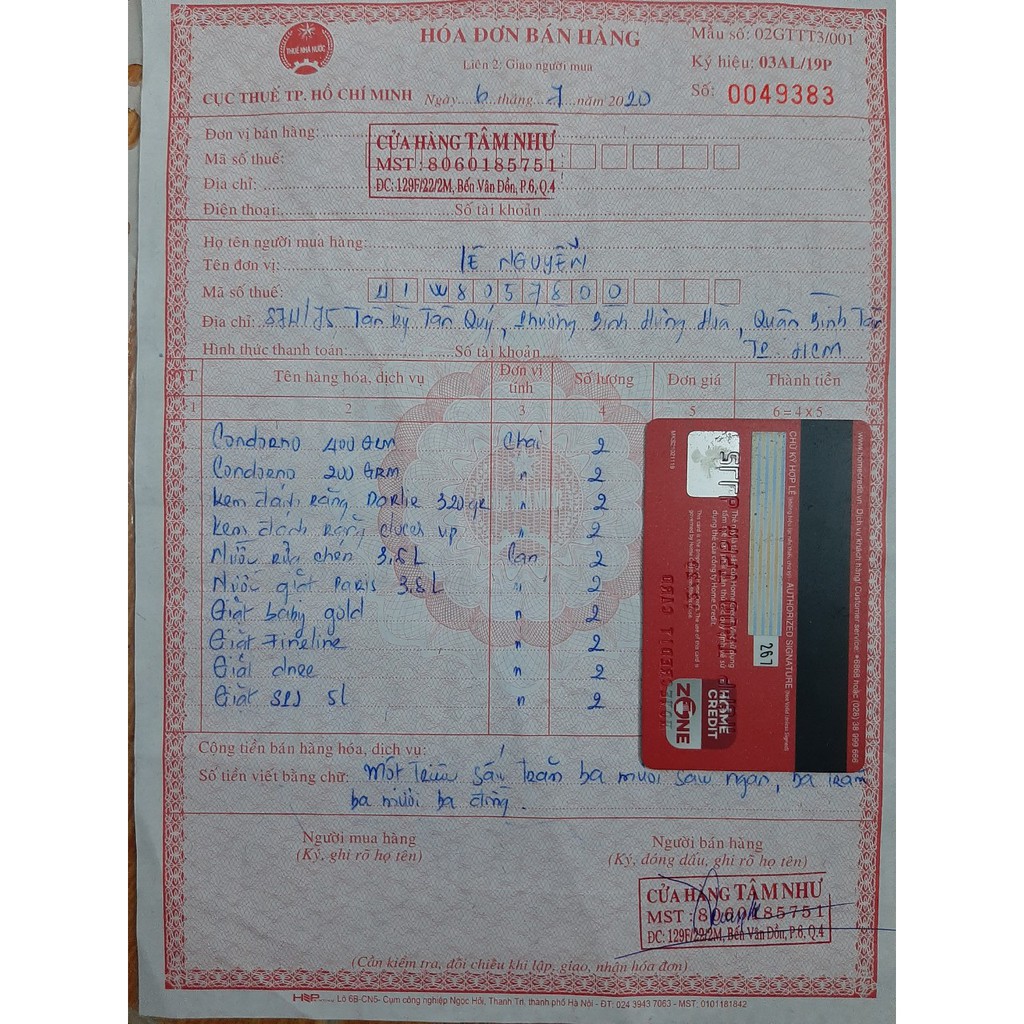 HÓA ĐƠN BÁN HÀNG
Liên 2: Giao người mua
Mẫu số: 02GTTT3/001
Ký hiệu: 03AL/19P
Số: 0049383
THUẾ NHÀ NƯỚC
CỤC THUẾ TP. HỒ CHÍ MINH Ngày 6 tháng 7 năm 2020
Đơn vị bán hàng:
Mã số thuế:
Địa chỉ:
CỬA HÀNG TÂM NHƯ
MST : 8060185751
ĐC: 129F/22/2M, Bến Vân Đồn, P.6, Q.4
Điện thoại: Số tài khoản
Họ tên người mua hàng:
Tên đơn vị: LÊ NGUYỄN
Mã số thuế: 41W8057800
Địa chỉ: Tân Kỳ Tân Quý, Phường Bình Hưng Hòa, Quận Bình Tân
TP. HCM
Hình thức thanh toán: Số tài khoản
STT Tên hàng hóa, dịch vụ Đơn vị tính Số lượng Đơn giá Thành tiền
1 2 3 4 5 6 = 4 x 5
400 GRM Chai 2
200 GRM " 2
Kem đánh răng Darlie 320 gr " 2
Kem đánh răng up " 2
Nước rửa chén 3,8 L Can 2
Nước giặt Paris 3,8 L " 2
Giặt baby gold " 2
Giặt Fineline " 2
Giặt dnee " 2
Giặt 5L " 2
www.homecredit.vn
AUTHORIZED SIGNATURE
CHỮ KÝ HỢP LỆ
267
HOME CREDIT
ZONE
Cộng tiền bán hàng hóa, dịch vụ:
Số tiền viết bằng chữ: Một triệu sáu trăm ba mươi sáu ngàn, ba trăm
ba mươi ba đồng.
Người mua hàng
(Ký, ghi rõ họ tên)
Người bán hàng
(Ký, đóng dấu, ghi rõ họ tên)
CỬA HÀNG TÂM NHƯ
MST : 8060185751
ĐC: 129F/22/2M, Bến Vân Đồn, P.6, Q.4
(Cần kiểm tra, đối chiếu khi lập, giao, nhận hóa đơn)
Lô 6B-CN5- Cụm công nghiệp Ngọc Hồi, Thanh Trì, thành phố Hà Nội - ĐT: 024 3943 7063 - MST: 0101181842